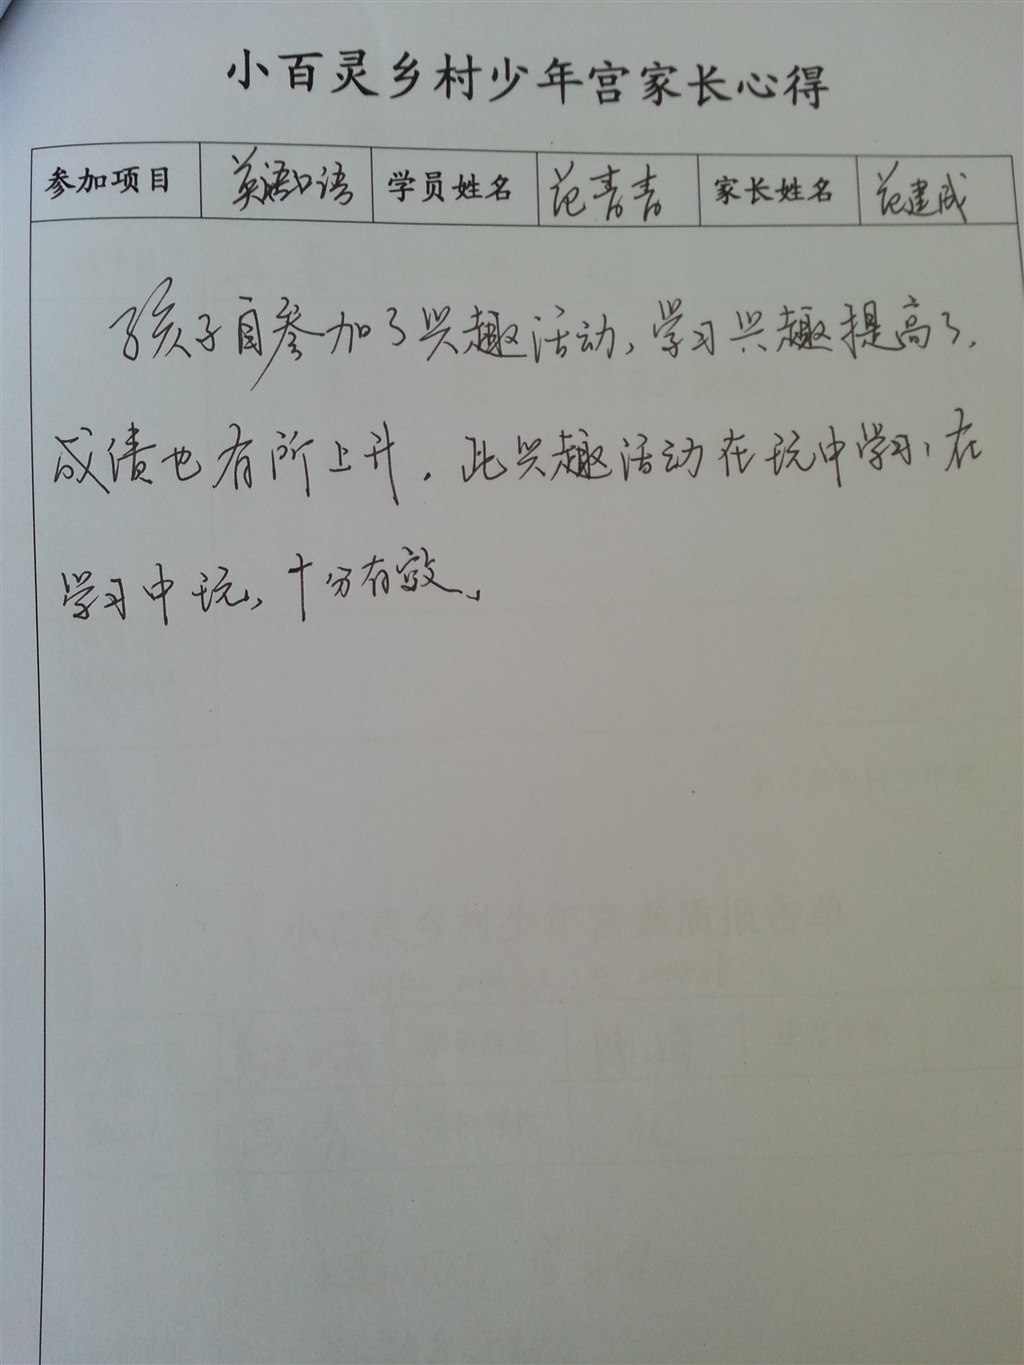 小百灵乡村少年宫家长心得
参加项目 英语口语 学员姓名 范青青 家长姓名 范建成
孩子自参加了兴趣活动,学习兴趣提高了,
成绩也有所上升。此兴趣活动在玩中学习,在
学习中玩,十分有效。